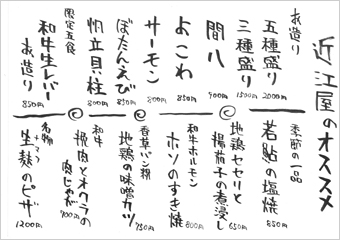 近江屋のオススメ
お造り
五種盛り
2000円
三種盛り
1500円
間八
900円
よこわ
850円
サーモン
800円
ぼたんえび
850円
帆立貝柱
800円
限定五食
和牛生レバーお造り
850円
季節の一品
若鮎の塩焼
850円
地鶏セセリと
揚茄子の煮浸し
650円
和牛ホルモン
ホソのすき焼
800円
香草パン粉
地鶏の味噌カツ
750円
和牛
挽肉とオクラの
肉じゃが
900円
名物
生麩のピザ
1200円